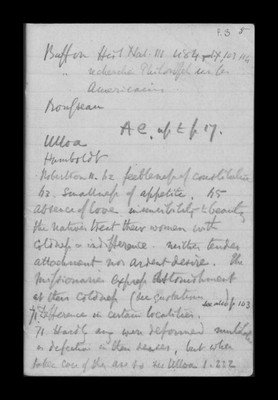 13 5
Buffon Hist. Nat. III. 484 IX 103 114
" recherches Philosoph sur les
Americains
Bouguer
AC. up to p. 17.
Ulloa
Humboldt
Robertson II. 62 feebleness of constitution
63. Smallness of appetite. 65
absence of love insensibility to beauty
the natives treat their women with
coldness & indifference neither tender
attachment nor ardent desire. The
Missionaries express astonishment
at their coldness (See quotations
see also p 103
71 Difference in certain localities.
71 Hardly any were deformed mutilated
or defective in their senses, but when
taken care of they are so see Ulloa 1. 232